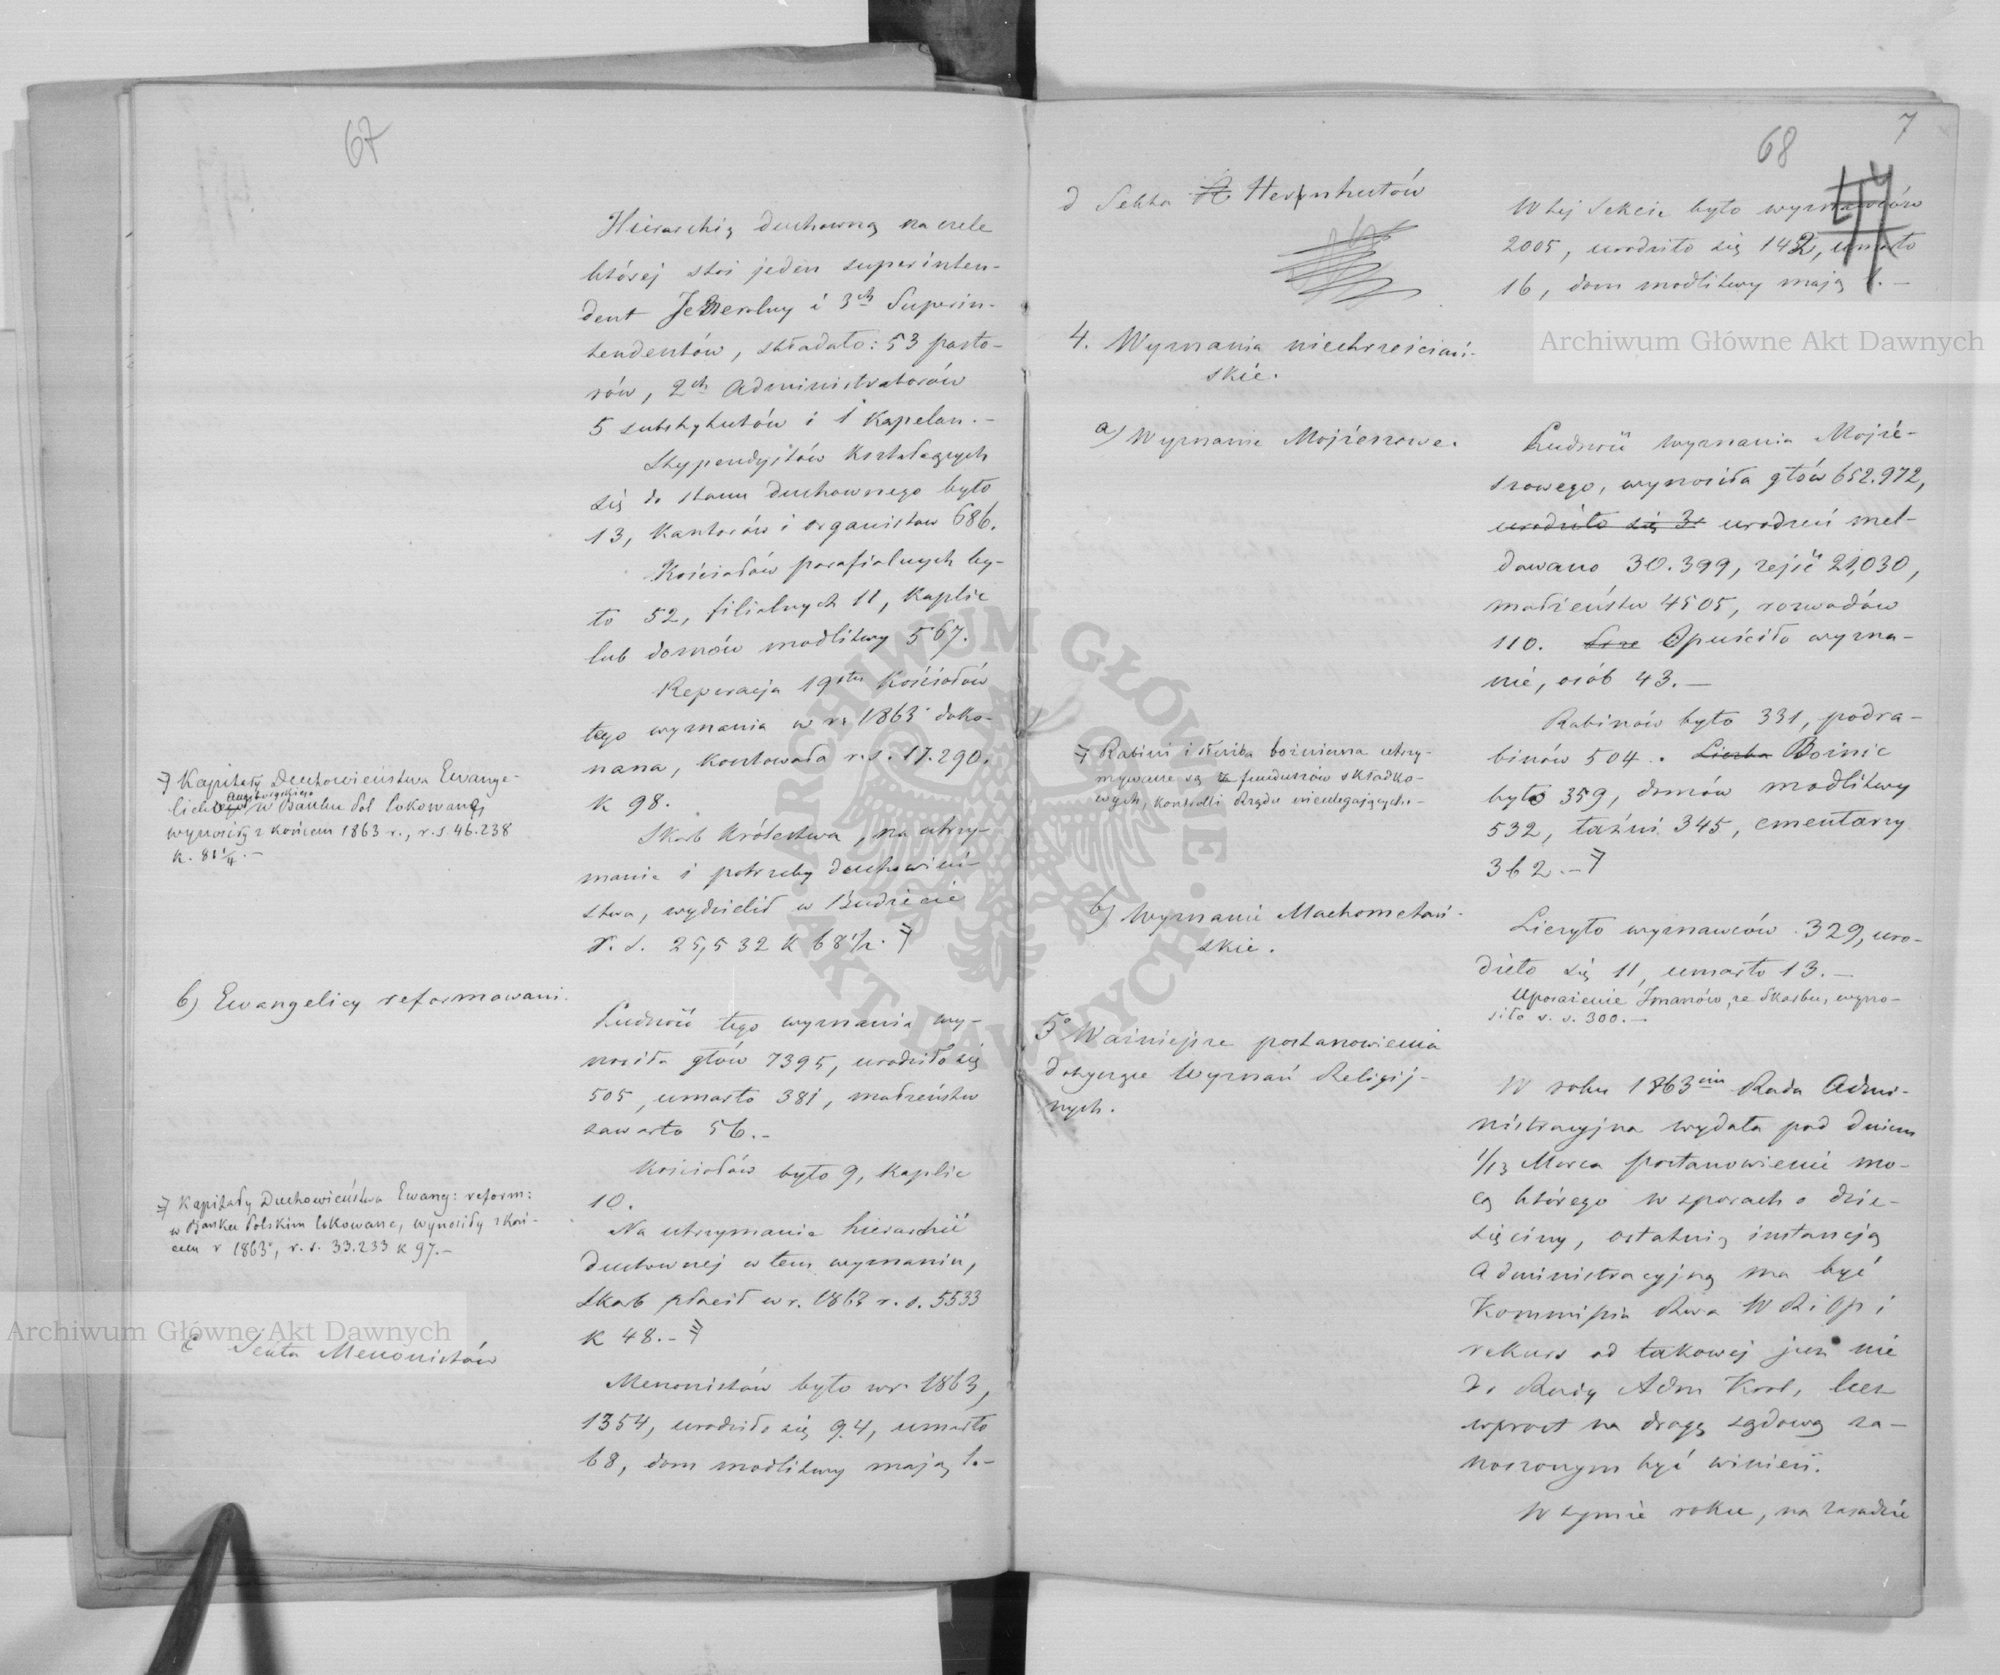 67
Hierarchią duchowną na czele
której stoi jeden superinten-
dent Jeneralny i 3ch Superin-
tendentów, składało: 53 pasto-
rów, 2ch Administratorów
5 substytutów i 1 Kapelan.-
Stypendystów Kształcących
się do stanu duchownego było
13, Kantorów i organistów 686.
Kościołów parafialnych by-
ło 52, filialnych 11, Kaplic
lub domów modlitwy 567.
Reperacja 19stu Kościołów
tego wyznania w r: 1863 doko-
nana, kosztowała r.s. 17.290.
K 98.
Skarb Królestwa, na utrzy-
manie i potrzeby duchowień-
stwa, wydzielił w Budżecie
r.s. 25,532 K 68½.
Kapitały Duchowieństwa Ewange-
lick Augsburskiego w Banku Pol lokowane,
wynosiły z końcem 1863 r., r.s. 46.238
K. 81¼.-
b) Ewangelicy reformowani.
Ludność tego wyznania wy-
nosiła głów 7395, urodziło się
505, umarło 381, małżeństw
zawarto 56.-
Kościołów było 9, Kaplic
10.
Na utrzymanie hierarchii
duchownej w tem wyznaniu,
Skarb płacił w r. 1863 r.s. 5533
K 48.-
Kapitały Duchowieństwa Ewang: reform:
w Banku Polskim lokowane, wynosiły z koń-
cem r 1863, r.s. 33.233 K 97.-
c Sekta Menonistów
Menonistów było w r. 1863,
1354, urodziło się 94, umarło
68, dom modlitwy mają 1.-
68
7
d Sekta Hernhutów
W tej Sekcie było wyznawców
2005, urodziło się 142, umarło
16, dom modlitwy mają 1.-
4. Wyznania niechrześciań-
skie.
a) Wyznanie Mojżeszowe.
Ludność wyznania Mojże-
szowego, wynosiła głów 652.972,
urodziło się 3 urodzeń mel-
dowano 30.399, zejść 21,030,
małżeństw 4505, rozwodów
110. Opuściło wyzna-
nie, osób 43.-
Rabinów było 331, podra-
binów 504. Liczba Bożnic
było 359, domów modlitwy
532, łaźni 345, cmentarzy
362.-
Rabini i służba bożniczna utrzy-
mywane są z funduszów składko-
wych, kontrolli Rządu nieulegających.-
b) Wyznanie Machometań-
skie.
Liczyło wyznawców 329, uro-
dziło się 11, umarło 13.-
Uposażenie Imanów, ze Skarbu, wyno-
siło r.s. 300.-
5° Ważniejsze postanowienia
dotyczące Wyznań Religij-
nych.
W roku 1863cim Rada Admi-
nistracyjna wydała pod dniem
1/13 Marca postanowienie mo-
cą którego w sporach o dzie-
sięciny, ostatnią instancją
Administracyjną ma być
Kommissia Rzwa W R i Op i
rekurs od takowej już nie
do Rady Adm Król, lecz
wprost na drogę sądową za-
noszonym być winien.
W tymże roku, na zasadzie
Archiwum Główne Akt Dawnych
Archiwum Główne Akt Dawnych
ARCHIWUM GŁÓWNE · AKT DAWNYCH ·